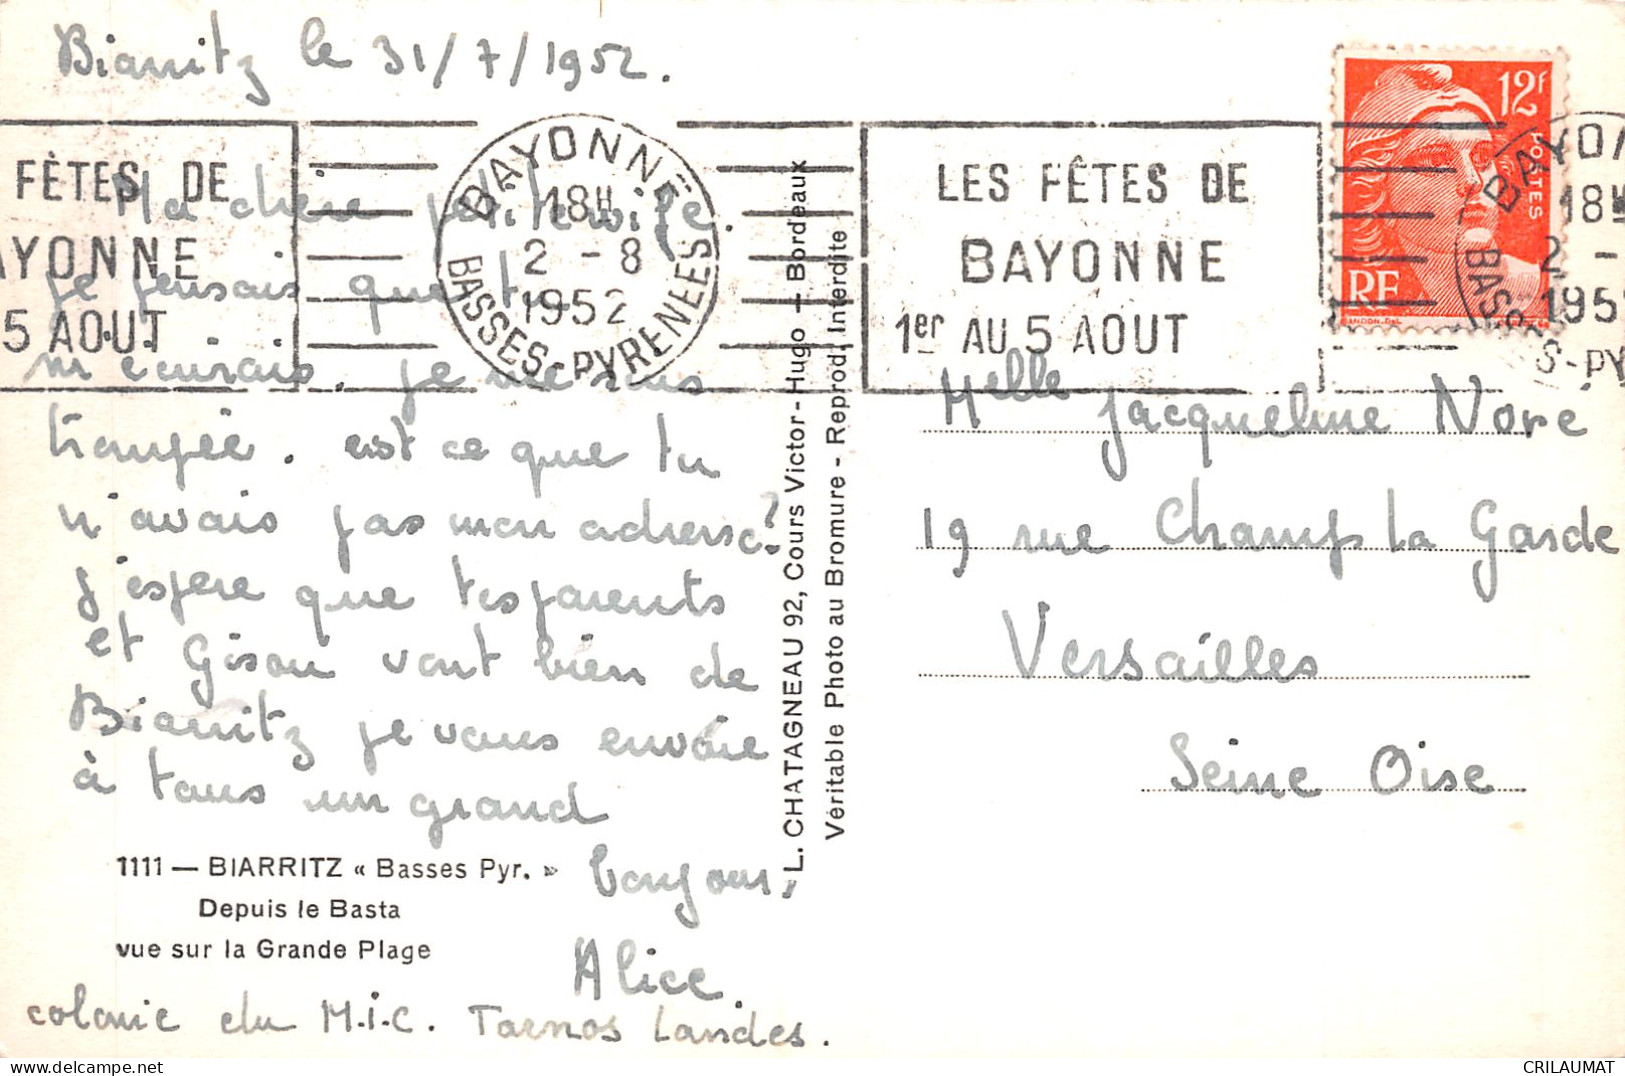 Biarritz le 31/7/1952.
Ma chère petite
je pensais que tu
m'écrirais. je me suis
trompée. est ce que tu
n'avais pas mon adresse?
j'espère que tes parents
et Gison vont bien de
Biarritz je vous envoie
à tous un grand
bonjour,
Alice.
colonie du M.I.C. Tarnos Landes.
1111 — BIARRITZ « Basses Pyr. »
Depuis le Basta
vue sur la Grande Plage
FÊTES DE
AYONNE
5 AOUT
BAYONNE
18H
2 - 8
1952
BASSES-PYRENEES
LES FÊTES DE
BAYONNE
1er AU 5 AOUT
12F
POSTES
RF
GANDON.DEL
BAYON
18H
2 -
195
BASSES-PY
L. CHATAGNEAU 92, Cours Victor-Hugo — Bordeaux
Véritable Photo au Bromure - Reprod. Interdite
Melle Jacqueline Noré
19 rue Champ la Garde
Versailles
Seine Oise
CRILAUMAT